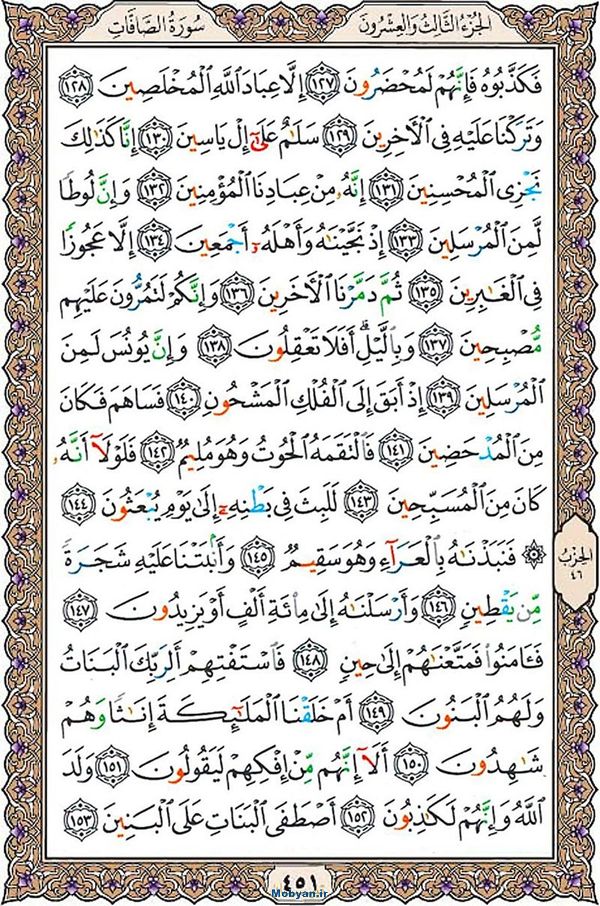 سُورَةُ الصَّافَّاتِ
الجُزءُ الثَّالِثُ وَالعِشرُونَ
فَكَذَّبُوهُ فَإِنَّهُمْ لَمُحْضَرُونَ ١٢٧ إِلَّا عِبَادَ ٱللَّهِ ٱلْمُخْلَصِينَ ١٢٨
وَتَرَكْنَا عَلَيْهِ فِى ٱلْأَخِرِينَ ١٢٩ سَلَٰمٌ عَلَىٰٓ إِلْ يَاسِينَ ١٣٠ إِنَّا كَذَٰلِكَ
نَجْزِى ٱلْمُحْسِنِينَ ١٣١ إِنَّهُۥ مِنْ عِبَادِنَا ٱلْمُؤْمِنِينَ ١٣٢ وَإِنَّ لُوطًا
لَّمِنَ ٱلْمُرْسَلِينَ ١٣٣ إِذْ نَجَّيْنَٰهُ وَأَهْلَهُۥٓ أَجْمَعِينَ ١٣٤ إِلَّا عَجُوزًا
فِى ٱلْغَٰبِرِينَ ١٣٥ ثُمَّ دَمَّرْنَا ٱلْأَخَرِينَ ١٣٦ وَإِنَّكُمْ لَتَمُرُّونَ عَلَيْهِم
مُّصْبِحِينَ ١٣٧ وَبِٱلَّيْلِ ۗ أَفَلَا تَعْقِلُونَ ١٣٨ وَإِنَّ يُونُسَ لَمِنَ
ٱلْمُرْسَلِينَ ١٣٩ إِذْ أَبَقَ إِلَى ٱلْفُلْكِ ٱلْمَشْحُونِ ١٤٠ فَسَاهَمَ فَكَانَ
مِنَ ٱلْمُدْحَضِينَ ١٤١ فَٱلْتَقَمَهُ ٱلْحُوتُ وَهُوَ مُلِيمٌ ١٤٢ فَلَوْلَآ أَنَّهُۥ
كَانَ مِنَ ٱلْمُسَبِّحِينَ ١٤٣ لَلَبِثَ فِى بَطْنِهِۦٓ إِلَىٰ يَوْمِ يُبْعَثُونَ ١٤٤
۞ فَنَبَذْنَٰهُ بِٱلْعَرَآءِ وَهُوَ سَقِيمٌ ١٤٥ وَأَنۢبَتْنَا عَلَيْهِ شَجَرَةً
الحِزْبُ
٤٦
مِّن يَقْطِينٍ ١٤٦ وَأَرْسَلْنَٰهُ إِلَىٰ مِا۟ئَةِ أَلْفٍ أَوْ يَزِيدُونَ ١٤٧
فَـَٔامَنُوا۟ فَمَتَّعْنَٰهُمْ إِلَىٰ حِينٍ ١٤٨ فَٱسْتَفْتِهِمْ أَلِرَبِّكَ ٱلْبَنَاتُ
وَلَهُمُ ٱلْبَنُونَ ١٤٩ أَمْ خَلَقْنَا ٱلْمَلَٰٓئِكَةَ إِنَٰثًا وَهُمْ
شَٰهِدُونَ ١٥٠ أَلَآ إِنَّهُم مِّنْ إِفْكِهِمْ لَيَقُولُونَ ١٥١ وَلَدَ
ٱللَّهُ وَإِنَّهُمْ لَكَٰذِبُونَ ١٥٢ أَصْطَفَى ٱلْبَنَاتِ عَلَى ٱلْبَنِينَ ١٥٣
٤٥١
Mobyan.ir